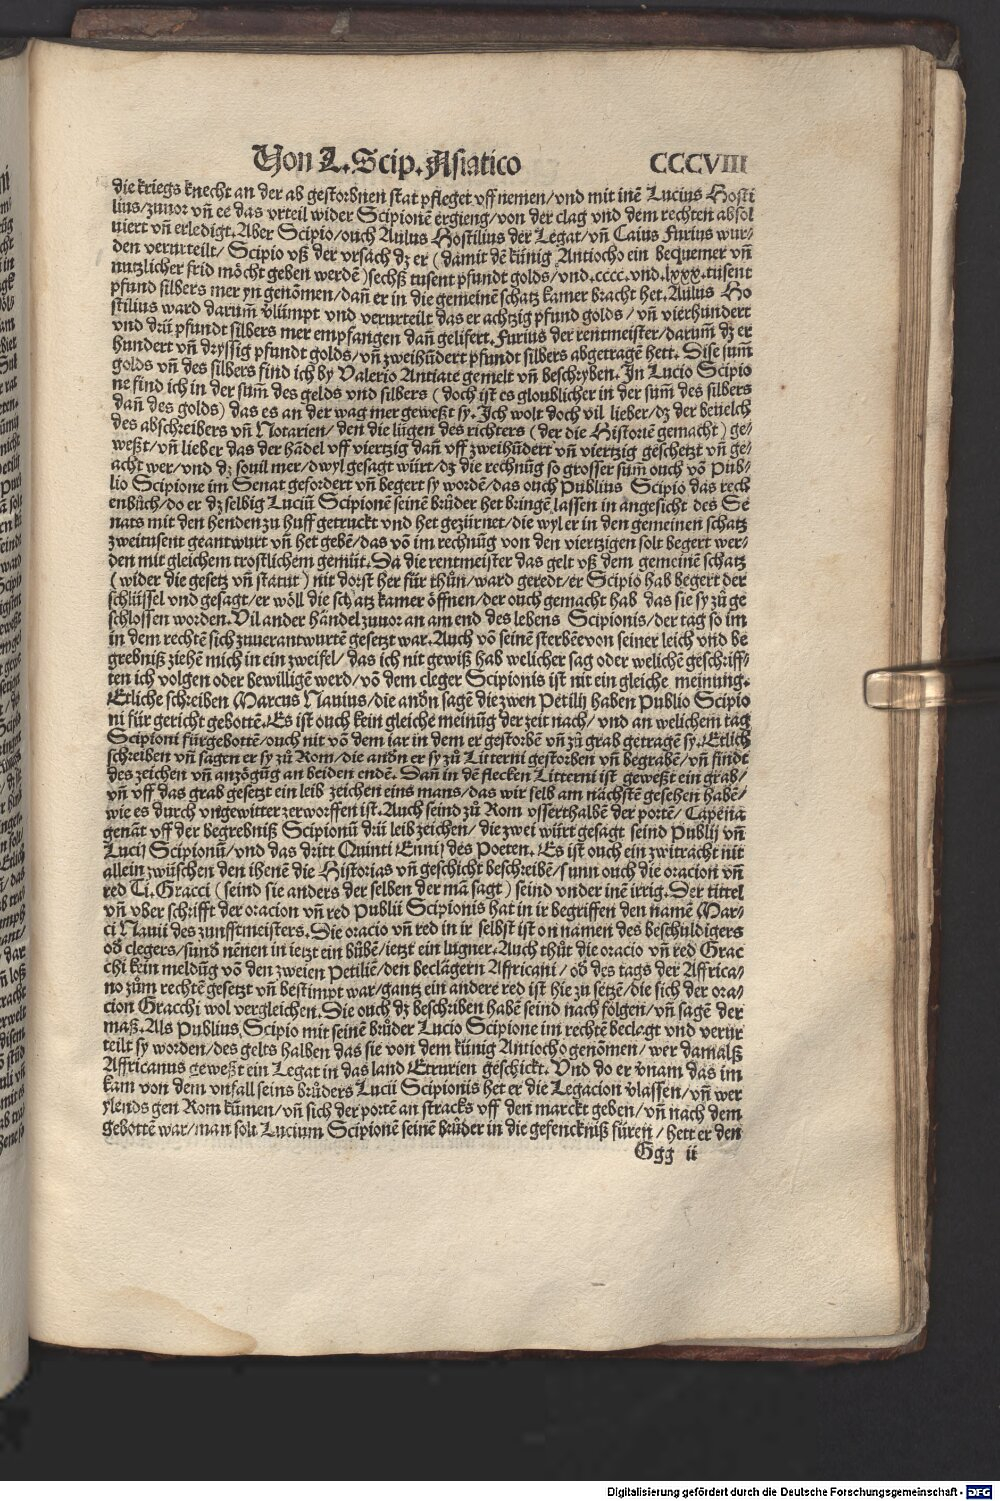 Von L. Scip. Asiatico CCCVIII
die kriegs knecht an der ab gestorbnen stat pfleget vff nemen/vnd mit inē Lucius Hosti
lius/zuuor vñ ee das vrteil wider Scipionē ergieng/von der clag vnd dem rechten absol
uiert vñ erledigt. Aber Scipio/ouch Aulus Hostilius der Legat/vñ Caius Furius wur-
den verurteilt/ Scipio vß der vrsach dz er (damit dē künig Antiocho ein bequemer vñ
nutzlicher frid möcht geben werdē) sechß tusent pfundt golds/vnd.cccc.vnd.lxxx.tusent
pfund silbers mer yn genomen/dañ er in die gemeinē schatz kamer bracht het. Aulus Ho
stilius ward darum̄ vlümpt vnd verurteilt das er achtzig pfund golds/ vñ vierhundert
vnd drü pfundt silbers mer empfangen dañ gelifert. Furius der rentmeister/darum̄ dz er
hundert vñ dryssig pfundt golds/vñ zweihūdert pfundt silbers abgetragē hett. Dise sum̄
golds vñ des silbers find ich by Valerio Antiate gemelt vñ beschryben. In Lucio Scipio
ne find ich in der sum̄ des gelds vnd silbers ( doch ist es gloublicher in der sum̄ des silbers
dañ des golds) das es an der wag mer geweßt sy. Ich wolt doch vil lieber/dz der beuelch
des abschreibers vñ Notarien/ den die lügen des richters (der die Historiē gemacht) ge-
weßt/vñ lieber das der hādel vff viertzig dañ vff zweihūdert vñ viertzig geschetzt vñ ge-
acht wer/vnd dz souil mer/dwyl gesagt würt/dz die rechnūg so grosser sum̄ ouch vō Pub-
lio Scipione im Senat gefordert vñ begert sy wordē/das ouch Publius Scipio das rech
enbůch/do er dz selbig Luciū Scipionē seinē brůder het bringē lassen in angesicht des Se
nats mit den henden zu huff getruckt vnd het gezürnet/die wyl er in den gemeinen schatz
zweitusent geantwurt vñ het gebē/das vō im rechnūg von den viertzigen solt begert wer-
den mit gleichem trostlichem gemüt. Da die rentmeister das gelt vß dem gemeinē schatz
(wider die gesetz vñ statut) nit dorst her für thůn/ward geredt/er Scipio hab begert der
schlüssel vnd gesagt/er wöll die schatz kamer öffnen/der ouch gemacht hab das sie sy zů ge
schlossen worden. Vil ander händel zuuor an am end des lebens Scipionis/der tag so im
in dem rechtē sich zuuerantwurtē gesetzt war. Auch vō seinē sterbē von seiner leich vnd be
grebniß ziehē mich in ein zweifel/das ich nit gewiß hab welicher sag oder welichē geschriff-
ten ich volgen oder bewilligē werd/vō dem cleger Scipionis ist nit ein gleiche meinung.
Etliche schreiben Marcus Nauius/die andn̄ sagē die zwen Petilij haben Publio Scipio
ni für gericht gebottē. Es ist ouch kein gleiche meinūg der zeit nach/vnd an welichem tag
Scipioni fürgebottē/ouch nit vō dem iar in dem er gestorbē vñ zů grab getragē sy. Etlich
schreiben vñ sagen er sy zů Rom/die andn̄ er sy zů Litterni gestorbē vñ begrabē/vñ findt
des zeichen vñ anzögūg an beiden endē. Dañ in dē flecken Litterni ist geweßt ein grab/
vñ vff das grab gesetzt ein leib zeichen eins mans/das wir selb am nächstē gesehen habē/
wie es durch vngewitter zerworffen ist. Auch seind zů Rom vsserthalbē der portē/Capena
genāt vff der begrebniß Scipionū drü leib zeichen/die zwei würt gesagt seind Publij vñ
Lucij Scipionū/vnd das dritt Quinti Ennij des Poeten. Es ist ouch ein zwitracht nit
allein zwüschen den ihenē die Historias vñ geschicht beschreibē/sunn ouch die oracion vñ
red Ti. Gracci (seind sie anders der selben der mā sagt) seind vnder inē irrig. Der tittel
vñ vber schrifft der oracion vñ red Publii Scipionis hat in ir begriffen den namē Mar-
ci Nauii des zunfftmeisters. Die oracio vñ red in ir selbst ist on namen des beschuldigers
od clegers/sund nēnen in ietzt ein bůbē/ietzt ein lugner. Auch thůt die oracio vñ red Grac
chi kein meldūg vō den zweien Petiliē/den beclägern Affricani/ od des tags der Affrica-
no zům rechtē gesetzt vñ bestimpt war/gantz ein andere red ist hie zu setzē/die sich der ora-
cion Gracchi wol vergleichen. Die ouch dz beschriben habē seind nach folgen/vñ sagē der
maß. Als Publius Scipio mit seinē brůder Lucio Scipione im rechtē beclagt vnd verur
teilt sy worden/des gelts halben das sie von dem künig Antiocho genomen/wer damalß
Affricanus geweßt ein Legat in das land Etrurien geschickt. Vnd do er vnam das im
kam von dem vnfall seins brůders Lucii Scipionis het er die Legacion vlassen/vñ wer
ylends gen Rom kūmen/vñ sich der portē an stracks vff den marckt geben/vñ nach dem
gebottē war/man solt Lucium Scipionē seinē brůder in die gefenckniß füren/hett er den
Ggg ii
Digitalisierung gefördert durch die Deutsche Forschungsgemeinschaft - DFG